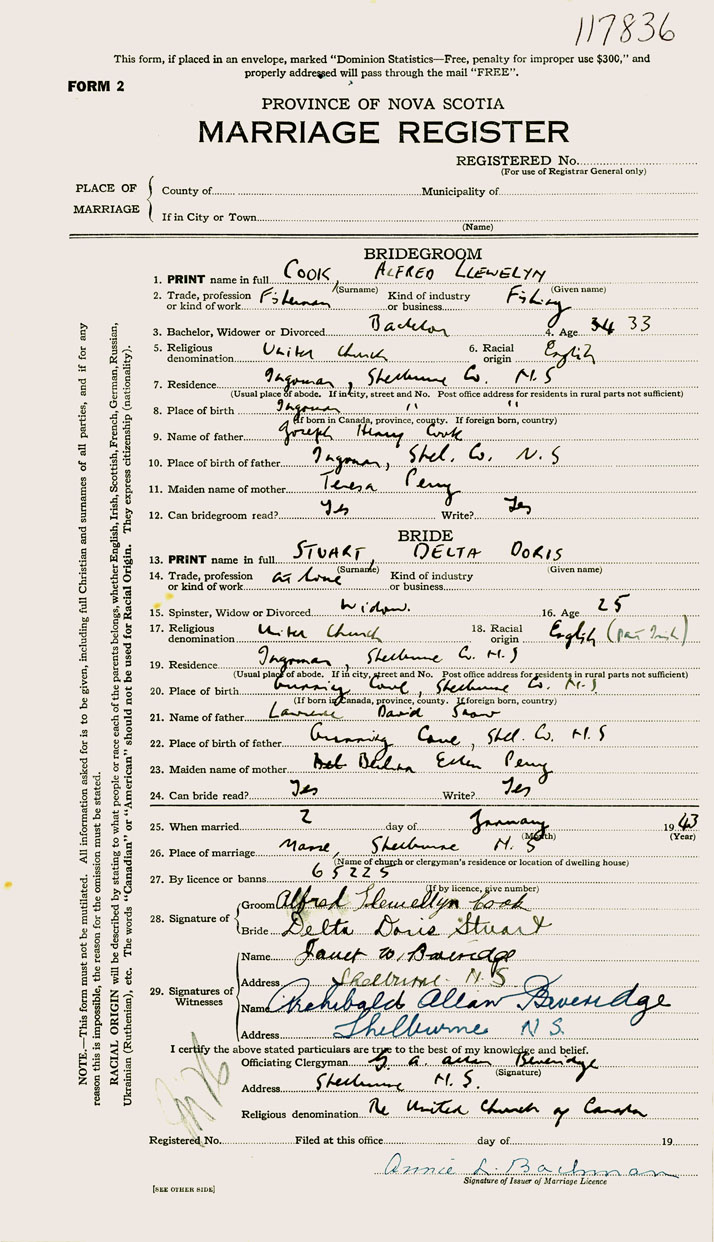 117836
This form, if placed in an envelope, marked "Dominion Statistics—Free, penalty for improper use $300," and
properly addressed will pass through the mail "FREE".
FORM 2
PROVINCE OF NOVA SCOTIA
MARRIAGE REGISTER
REGISTERED No.
(For use of Registrar General only)
PLACE OF MARRIAGE
County of Municipality of
If in City or Town
(Name)
BRIDEGROOM
1. PRINT name in full COOK, ALFRED LLEWELYN
(Surname) (Given name)
2. Trade, profession or kind of work Fisherman Kind of industry or business Fishing
3. Bachelor, Widower or Divorced Bachelor 4. Age 34 33
5. Religious denomination United Church 6. Racial origin English
7. Residence Ingomar, Shelburne Co. N.S
(Usual place of abode. If in city, street and No. Post office address for residents in rural parts not sufficient)
8. Place of birth Ingomar " "
(If born in Canada, province, county. If foreign born, country)
9. Name of father Joseph Henry Cook
10. Place of birth of father Ingomar, Shel. Co. N.S
11. Maiden name of mother Teresa Perry
12. Can bridegroom read? Yes Write? Yes
BRIDE
13. PRINT name in full STUART, DELTA DORIS
(Surname) (Given name)
14. Trade, profession or kind of work at home Kind of industry or business
15. Spinster, Widow or Divorced Widow. 16. Age 25
17. Religious denomination United Church 18. Racial origin English (part Irish)
19. Residence Ingomar, Shelburne Co. N.S
(Usual place of abode. If in city, street and No. Post office address for residents in rural parts not sufficient)
20. Place of birth Gunning Cove, Shelburne Co. N.S
(If born in Canada, province, county. If foreign born, country)
21. Name of father Lawrence David Snow
22. Place of birth of father Gunning Cove, Shel. Co. N.S
23. Maiden name of mother Ellen Perry
24. Can bride read? Yes Write? Yes
25. When married 2 day of January 1943
(Month) (Year)
26. Place of marriage Manse, Shelburne N.S
(Name of church or clergyman's residence or location of dwelling house)
27. By licence or banns 65225
(If by licence, give number)
28. Signature of Groom Alfred Llewellyn Cook
Bride Delta Doris Stuart
29. Signatures of Witnesses
Name Janet W. Beveridge
Address Shelburne N.S
Name Archibald Allan Beveridge
Address Shelburne N.S.
I certify the above stated particulars are true to the best of my knowledge and belief.
Officiating Clergyman A. Allan Beveridge
(Signature)
Address Shelburne N.S.
Religious denomination The United Church of Canada
Registered No. Filed at this office day of 19
Annie L. Bachman
Signature of Issuer of Marriage Licence
[SEE OTHER SIDE]
NOTE.—This form must not be mutilated. All information asked for is to be given, including full Christian and surnames of all parties, and if for any
reason this is impossible, the reason for the omission must be stated.
RACIAL ORIGIN will be described by stating to what people or race each of the parents belongs, whether English, Irish, Scottish, French, German, Russian,
Ukrainian (Ruthenian), etc. The words "Canadian" or "American" should not be used for Racial Origin. They express citizenship (nationality).